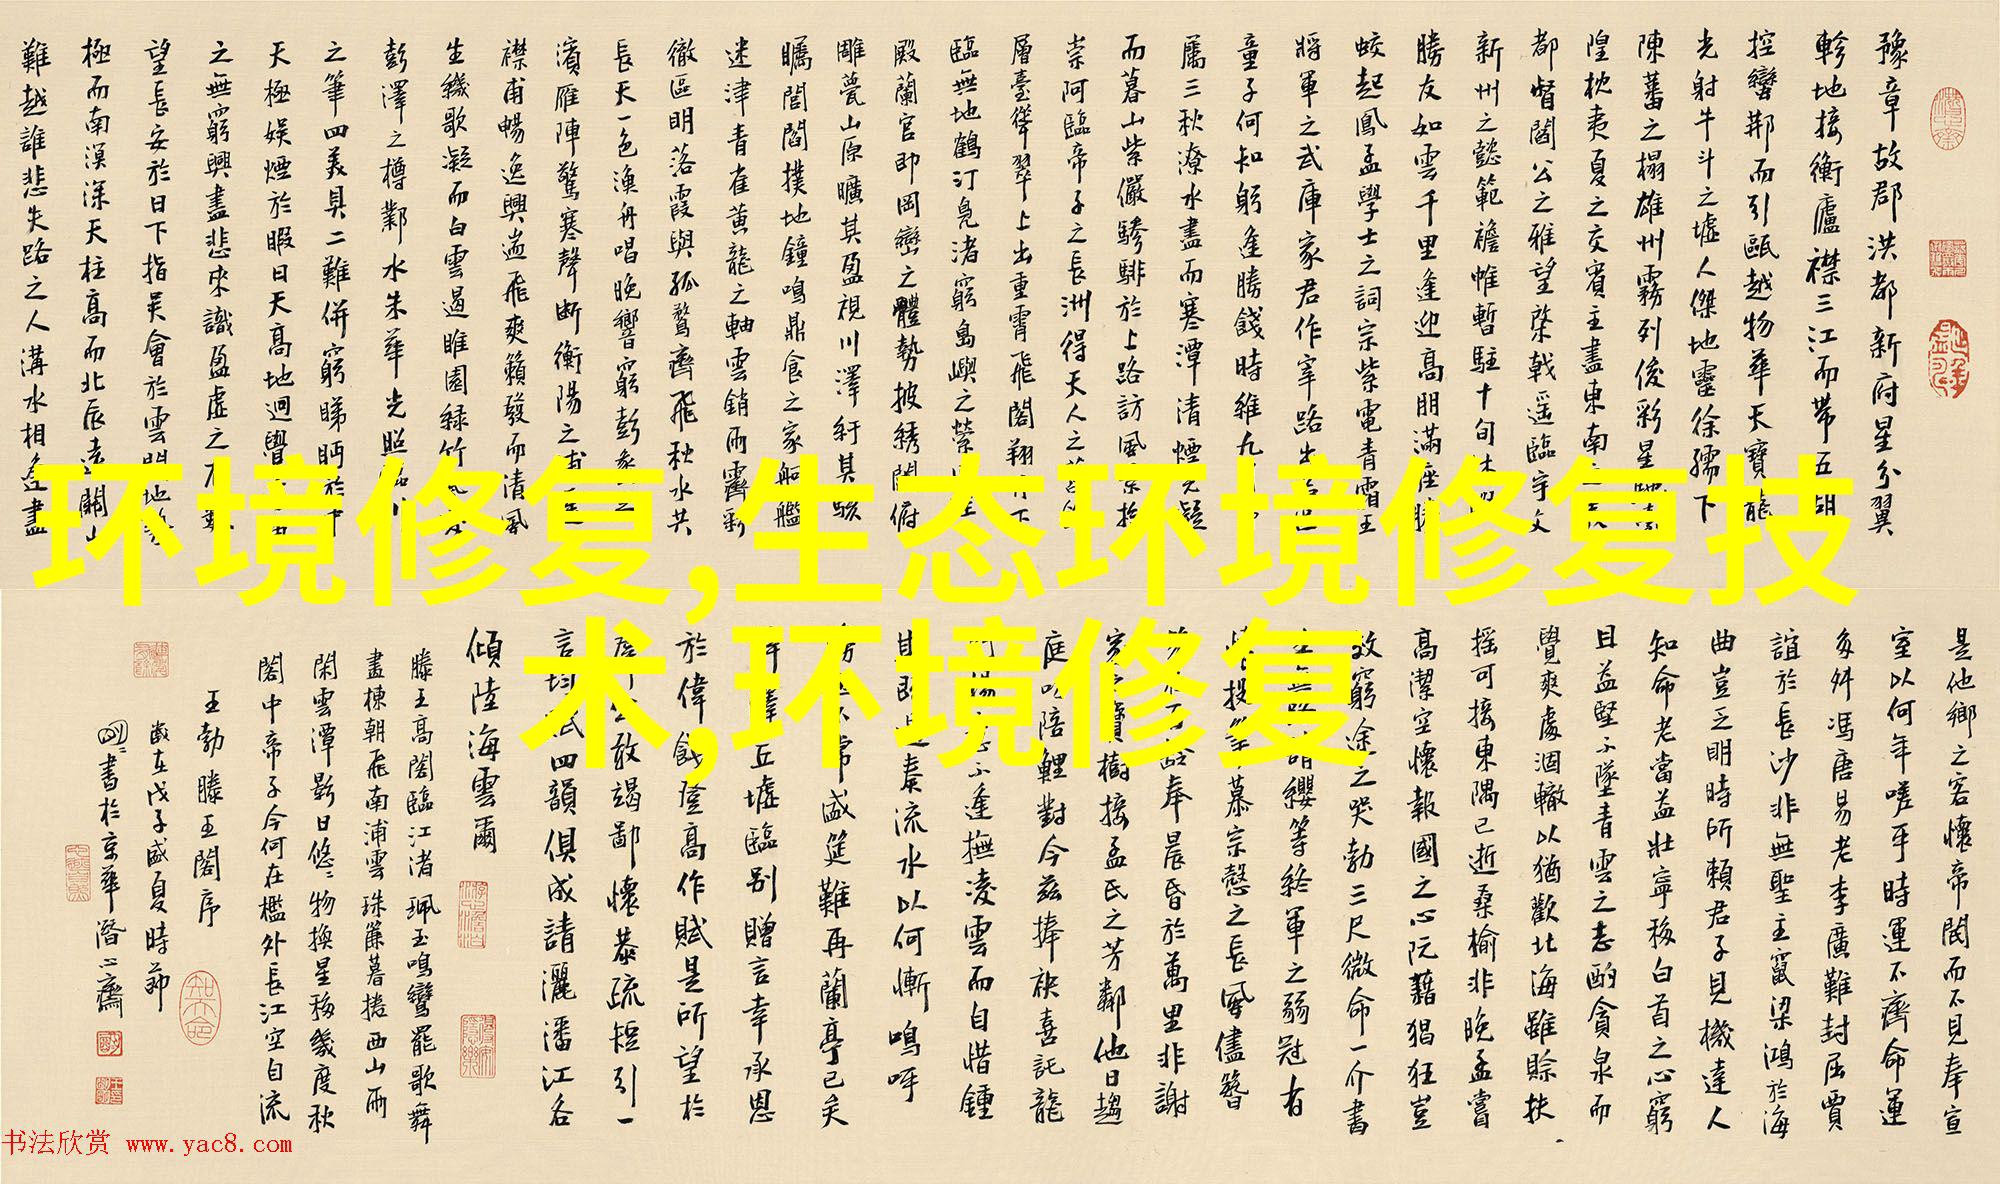 豫章故郡洪都新府星分翼
軫地接衡廬襟三江而帶五湖
控蠻荊而引甌越物華天寶龍
光射牛斗之墟人傑地靈徐孺下
陳蕃之榻雄州霧列俊彩星
隍枕夷夏之交賓主盡東南
都督閻公之雅望棨戟遥臨宇文
新州之懿範襜帷暫駐十旬
勝友如雲千里逢迎高朋滿座騰
蛟起鳳孟學士之詞宗紫電青霜王
將軍之武庫家君作宰路出
童子何知躬逢勝餞時維九
屬三秋潦水盡而寒潭清煙光凝
而暮山紫儼驂騑於上路訪風景於
崇阿臨帝子之長洲得天人之
層臺聳翠上出重霄飛閣翔丹下
臨無地鶴汀鳧渚窮島嶼之縈
殿蘭宮即岡巒之體勢披綉闥俯
雕甍山原曠其盈視川澤紆其駭
矚閭閻撲地鐘鳴鼎食之家舸艦
迷津青雀黄龍之軸雲銷雨霽彩
徹區明落霞與孤鶩齊飛秋水共
長天一色漁舟唱晚響窮彭蠡之
濱雁陣驚寒聲断衡陽之浦
襟甫暢逸興遄飛爽籟發而清風
生纖歌凝而白雲遏睢園緑竹
彭澤之樽鄴水朱華光照
之筆四美具二難併窮睇眄於中
天極娱煙於暇日天高地迥覺
之無窮興盡悲來識盈虚之
望長安於日下指吴會於雲間地勢
極而南溟深天柱高而北辰遠關山
難越誰悲失路之人溝水相逢盡
环境修复,生态环境修复技
术,环境修复
是他鄉之客懷帝閽而不見奉宣
室以何年嗟乎時運不齊命運
多舛馮唐易老李廣難封屈賈
誼於長沙非無聖主竄梁鴻於海
曲豈乏明時所賴君子見機達人
知命老當益壯寧移白首之心窮
且益堅不墜青雲之志酌貪泉而
覺爽處涸轍以猶歡北海雖賒扶
摇可接東隅已逝桑榆非晚孟嘗
高潔空懷報國之心阮藉猖狂豈
效窮途之哭勃三尺微命一介書
請纓等終軍之弱冠有
投筆慕宗慤之長風儘簪
奉晨昏於萬里非謝
寶樹接孟氏之芳鄰他日趨
庭叨陪鯉對今兹捧袂喜託龍
不逢撫凌雲而自惜鍾
奏流水以何慚嗚呼
常盛筵難再蘭亭已矣
丘墟臨别贈言幸承恩
於偉餞登高作賦是所望於
敢竭鄙懷恭疏短引一
言均四韻俱成請灑潘江各
傾陸海雲爾
滕王高閣臨江渚珮玉鳴鸞罷歌舞
畫棟朝飛南浦雲珠簾暮捲西山雨
閑雲潭影日悠悠物換星移幾度秋
閣中帝子今何在檻外長江空自流
王勃滕王閣序
歲在戊子盛夏時節
書於京華
书法欣赏 www.yac8.com